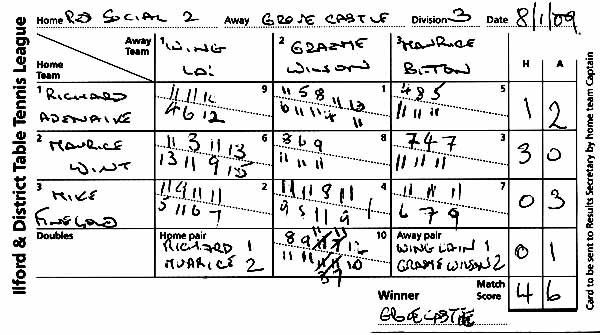 Home RED SOCIAL 2 Away GROVE CASTLE Division 3 Date 8/1/09
Ilford & District Table Tennis League
Away Team
Home Team
1 WING LAI
2 GRAEME WILSON
3 MAURICE BITTON
H A
1 RICHARD
9 11 11 11
4 6 12
1 11 5 8
6 11 11
5 4 8 5
11 11 11
1 2
2 MAURICE WINT
6 11 3 11 11 13
13 11 9
8 8 6 9
11 11 11
3 7 4 7
11 11 11
3 0
3 MIKE
2 11 9 11 11
5 11 6 7
4 11 11 8 11
9 5 11 9
7 11 11 11
6 7 9
0 3
Doubles
Home pair
RICHARD 1
MAURICE 2
10 8 9
11 11
Away pair
WING LAI 1
GRAEME WILSON 2
0 1
Winner
GROVE CASTLE
Match Score
4 6
Card to be sent to Results Secretary by home team Captain